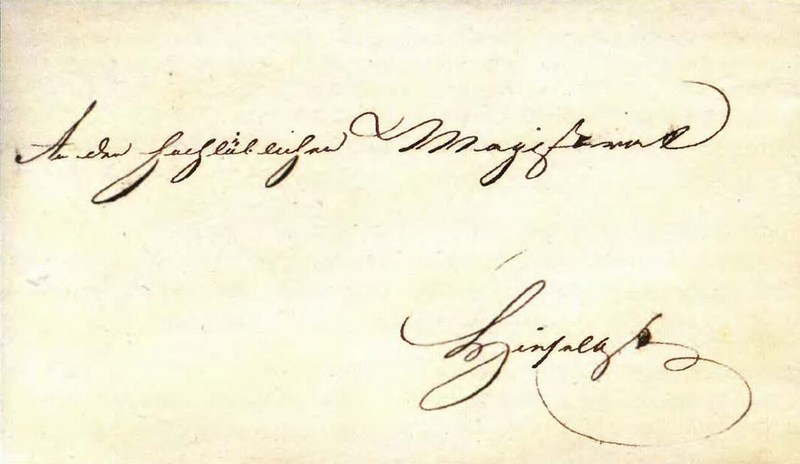 An den hochlöblichen Magistrat